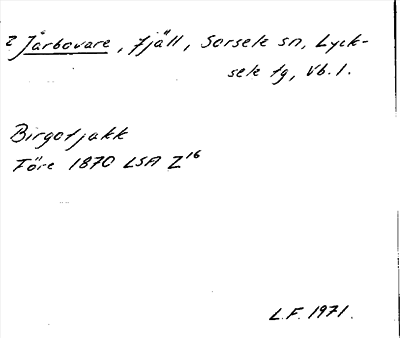 ? Jårbovare, fjäll, Sorsele sn, Lyck-
sele tg, Vb. l.
Birgotjakk
Före 1870 LSA Z16
L.F. 1971.